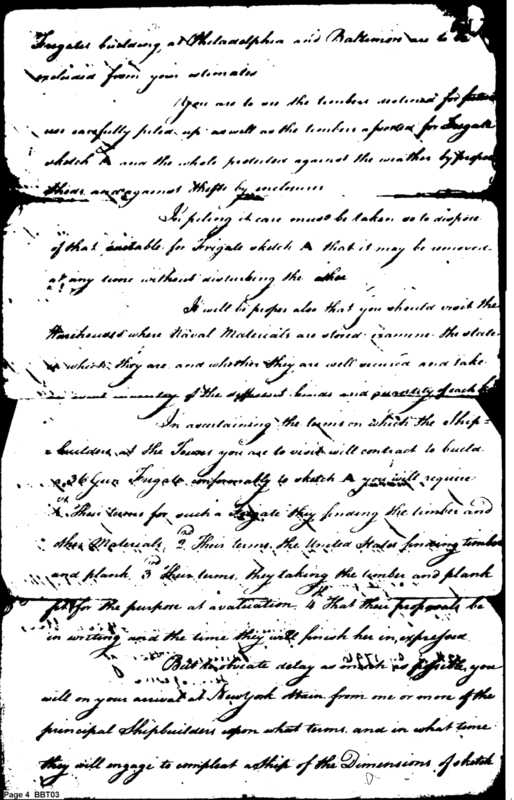 Frigates building, at Philadelphia and Baltimore are to be
excluded from your estimates
You are to see the timbers destined for future
use carefully piled up as well as the timbers assorted for Frigate
sketch A and the whole protected against the weather by proper
sheds and against thefts by enclosures
In piling it care must be taken so to dispose
of that suitable for Frigate sketch A that it may be removed
at any time without disturbing the other
It will be proper also that you should visit the
Warehouses where Naval Materials are stored examine the state
in which they are and whether they are well secured and take
an exact inventory of the different kinds and quantity of each
In ascertaining the terms on which the Ship=
=builders at the Towns you are to visit will contract to build
a 36 Gun Frigate conformably to sketch A you will require
1st Their terms for such a Frigate they finding the timber and
other Materials 2d Their terms, the United States finding timber
and plank 3d Their terms, they taking the timber and plank
fit for the purpose at a valuation 4th That their proposals be
in writing and the time they will finish her in, expressed
But to obviate delay as much as possible, you
will on your arrival at New York obtain from one or more of the
principal Shipbuilders upon what terms, and in what time
they will engage to compleat a Ship of the Dimensions of sketch
Page 4 BBT03